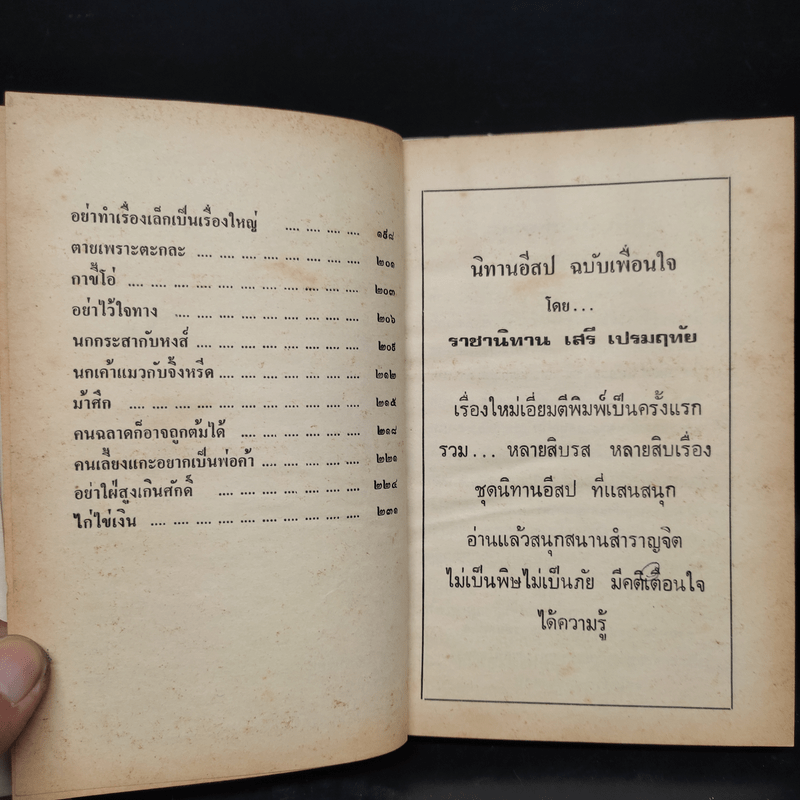 อย่าทำเรื่องเล็กเป็นเรื่องใหญ่ .... .... .... .... ๑๙๘
ตายเพราะตะกละ .... .... .... .... .... .... .... ๒๐๑
กาขี้โอ่ .... .... .... .... .... .... .... .... .... .... ๒๐๓
อย่าไว้ใจทาง .... .... .... .... .... .... .... .... ๒๐๖
นกกระสากับหงส์ .... .... .... .... .... .... .... ๒๐๙
นกเค้าแมวกับจิ้งหรีด .... .... .... .... .... .... ๒๑๒
ม้าศึก .... .... .... .... .... .... .... .... .... .... ๒๑๕
คนฉลาดก็อาจถูกต้มได้ .... .... .... .... .... .... ๒๑๘
คนเลี้ยงแกะอยากเป็นพ่อค้า .... .... .... .... .... ๒๒๑
อย่าใฝ่สูงเกินศักดิ์ .... .... .... .... .... .... .... ๒๒๔
ไก่ไข่เงิน .... .... .... .... .... .... .... .... .... .... ๒๓๑
นิทานอีสป ฉบับเพื่อนใจ
โดย...
ราชานิทาน เสรี เปรมฤทัย
เรื่องใหม่เอี่ยมตีพิมพ์เป็นครั้งแรก
รวม... หลายสิบรส หลายสิบเรื่อง
ชุดนิทานอีสป ที่แสนสนุก
อ่านแล้วสนุกสนานสำราญจิต
ไม่เป็นพิษไม่เป็นภัย มีคติเตือนใจ
ได้ความรู้